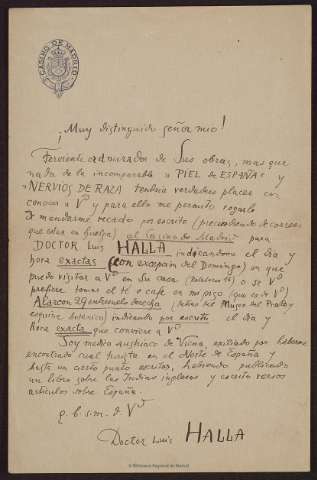 CASINO DE MADRID
¡Muy distinguido señor mio!
Ferviente admirador de Sus obras, mas que
nada de la incomparable "PIEL DE ESPAÑA" y
"NERVIOS DE RAZA" tendria verdadero placer en
conocer a Vᵈ y para ello me permito rogarle
de mandarme recado por escrito (prescindiendo de correos
que estan en huelga) al Casino de Madrid para
DOCTOR Luis HALLA indicandome el dia y
hora exactas (con excepcion del Domingo) en que
puedo visitar a Vᵈ en Su casa o si Vᵈ
prefiere tomar el té o café en mi piso
Alarcon 29 entresuelo derecha (detras del Museo del Prado y
esquina botanico) indicando por escrito el dia y
hora exacta que conviene a Vᵈ
Soy medico austriaco de Viena, exilado por haberme
encontrado en el Norte de España y
hasta un cierto punto escritor, habiendo publicado
un libro sobre las Indias inglesas y escrito varios
articulos sobre España.
q. b. s. m. d. Vᵈ
Doctor Luis HALLA
Biblioteca Regional de Madrid